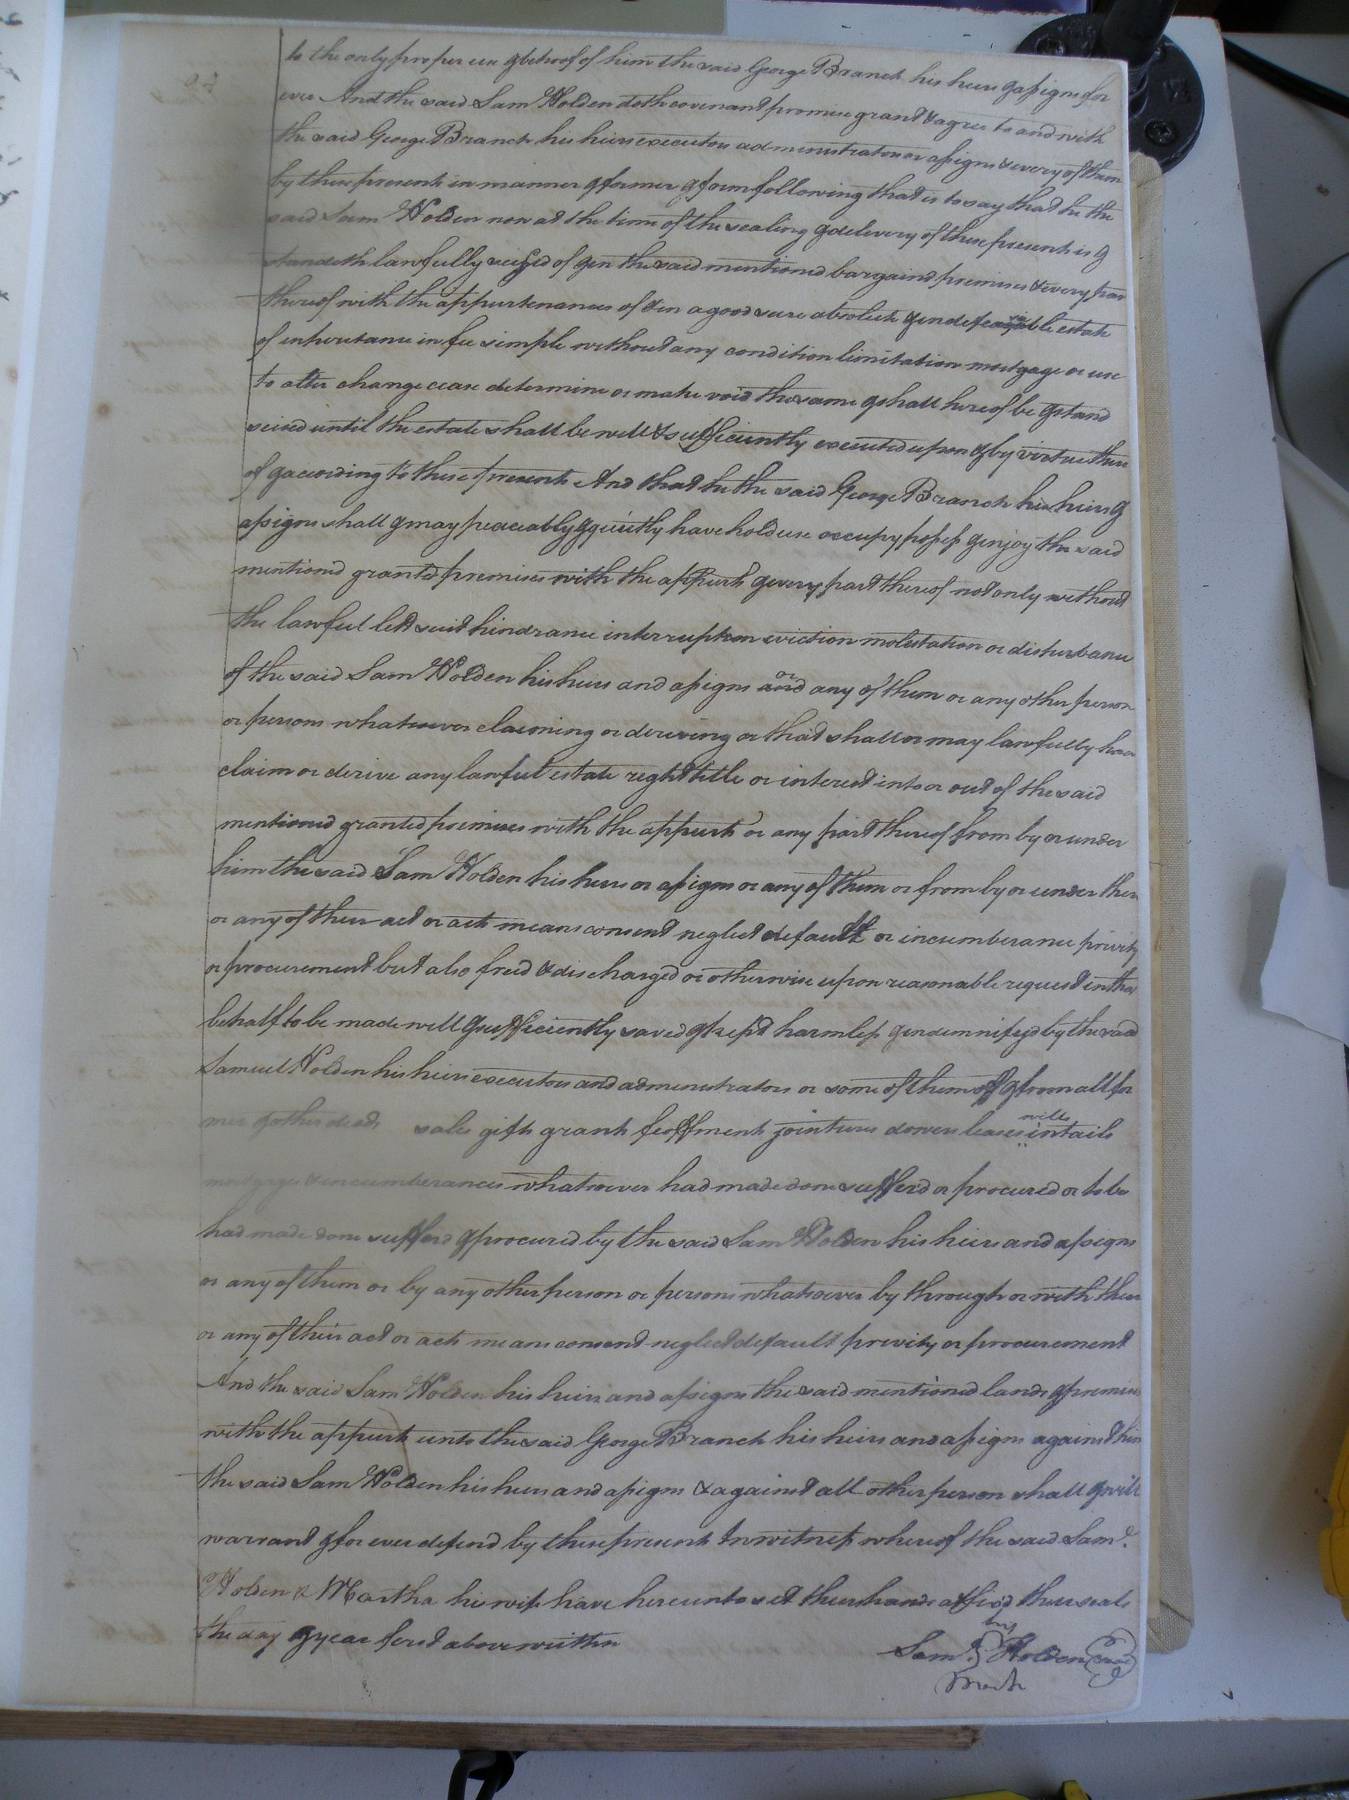 to the only proper use & behoof of him the said George Branch his heirs & assigns for
ever And the said Sam Holden doth covenant promise grant & agree to and with
the said George Branch his heirs executors administrators or assigns & every of them
by these presents in manner & former & form following that is to say that he the
said Sam Holden now at the time of the sealing & delivery of these presents is &
standeth lawfully seized of & in the said mentioned bargaind premises & every part
thereof with the appurtenances of & in a good sure absolute & indefeasable estate
of inheritance in fee simple without any condition limitation mortgage or use
to alter change cease determine or make void the same & shall hereof be & stand
seized until the estate shall be well & sufficiently executed upon & by virtue there
of & according to these presents And that he the said George Branch his heirs &
assigns shall & may peaceably & quietly have hold use occupy possess & enjoy the said
mentioned granted premises with the appurts & every part thereof not only without
the lawful lett suit hindrance interruption eviction molestation or disturbance
of the said Sam Holden his heirs and assigns or and any of them or any other person
or persons whatsoever claiming or deriving or that shall or may lawfully have
claim or derive any lawful estate right title or interest into or out of the said
mentioned granted premises with the appurts or any part thereof from by or under
him the said Sam Holden his heirs or assigns or any of them or from by or under them
or any of their act or acts means consent neglect default or incumberance privity
or procurement but also freed & discharged or otherwise upon reasonable request in that
behalf to be made well & sufficiently saved & kept harmless & indemnifyed by the said
Samuel Holden his heirs executors and administrators or some of them of & from all for
mer & other deeds sales gifts grants feoffments jointures dowers leases wills intails
mortgages & incumberances whatsoever had made done sufferd or procured or to be
had made done sufferd & procured by the said Sam Holden his heirs and assigns
or any of them or by any other person or persons whatsoever by through or with them
or any of their act or acts means consent neglect default privity or procurement
And the said Sam Holden his heirs and assigns the said mentioned lands & premises
with the appurts unto the said George Branch his heirs and assigns against him
the said Sam Holden his heirs and assigns & against all other person shall & will
warrant & for ever defend by these presents In witness whereof the said Saml.
Holden & Martha his wife have hereunto set their hands affixd their seals
the day & year first above written
his
Saml. Holden Seal
mark